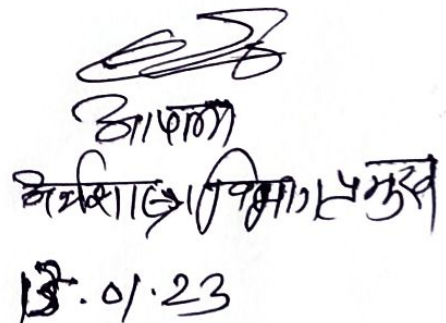 आपला
अर्थशास्त्र विभाग प्रमुख
13.01.23